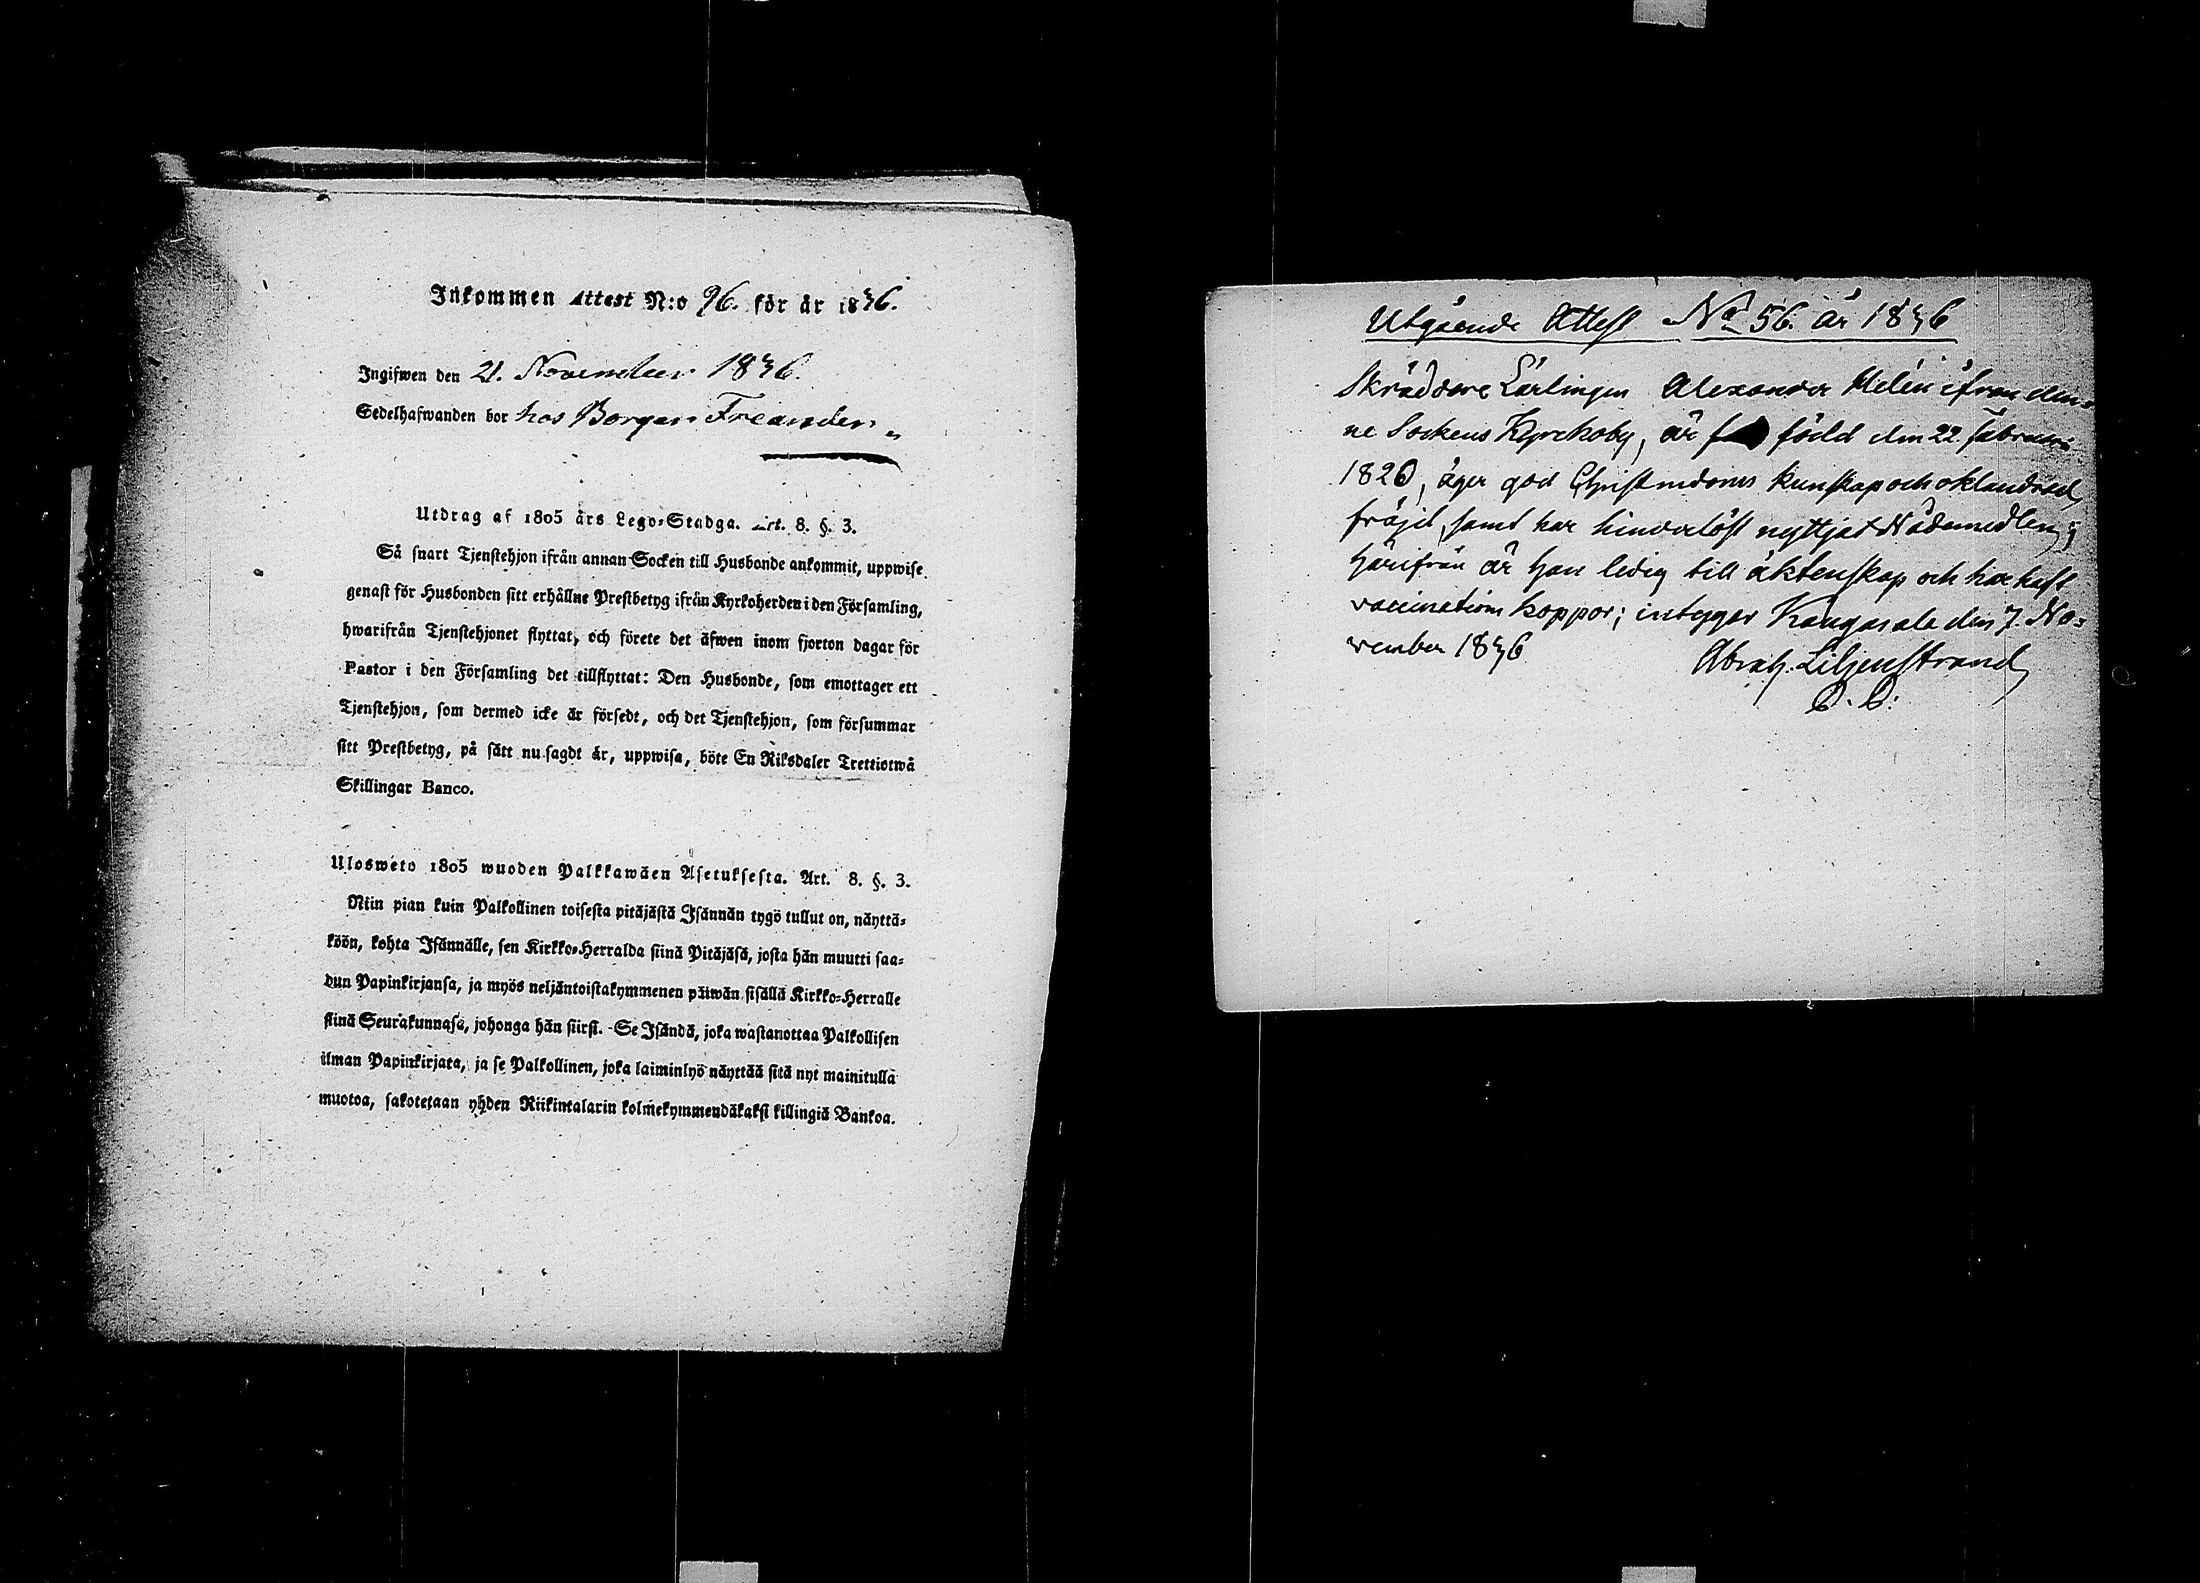 Inkommen Attest N:o 96. för år 1846.
Ingifwen den 21. November 1846.
Sedelhafwanden bor hos Borgan Freander
Utdrag af 1805 års Lego-Stadga. Art. 8. §. 3.
Så snart Tjenstehjon ifrån annan Socken till Husbonde ankommit, uppwise
genast för Husbonden sitt erhållne Prestbetyg ifrån Kyrkoherden i den Församling,
hwarifrån Tjenstehjonet flyttat, och förete det äfwen inom fjorton dagar för
Pastor i den Församling det tillflyttat: Den Husbonde, som emottager ett
Tjenstehjon, som dermed icke är försedt, och det Tjenstehjon, som försummar
sitt Prestbetyg, på sätt nu sagdt är, uppwisa, böte En Riksdaler Trettiotwå
Skillingar Banco.
Ulosweto 1805 wuoden Palkkawäen Asetuksesta. Art. 8. §. 3.
Niin pian kuin Palkollinen toisesta pitäjästä Isännän tygö tullut on, näyttä-
köön, kohta Isännälle, sen Kirkko-Herralda siinä Pitäjäsä, josta hän muutti saa-
dun Papinkirjansa, ja myös neljäntoistakymmenen päiwän sisällä Kirkko-Herralle
siinä Seurakunnasa, johonga hän siirsi. Se Isändä, joka wastanottaa Palkollisen
ilman Papinkirjata, ja se Palkollinen, joka laiminlyö näyttää sitä nyt mainitulla
muotoa, sakotetaan yhden Riikintalarin kolmekymmendäkaksi killingiä Bankoa.
Utgående Attest No 56. år 1846
Skräddare Lärlingen Alexander Helén ifrån den-
ne Sockens Kyrckoby, är född den 22 Februarii
1826, äger god Christendoms kunskap och oklandrad
fräjd, samt har hinderlöst nyttjat Nådemedlen;
härifrån är han ledig till äktenskap och har haft
vaccinations koppor; intygar Kangasala den 7. No-
vember 1846
Abrah. Liljenstrand